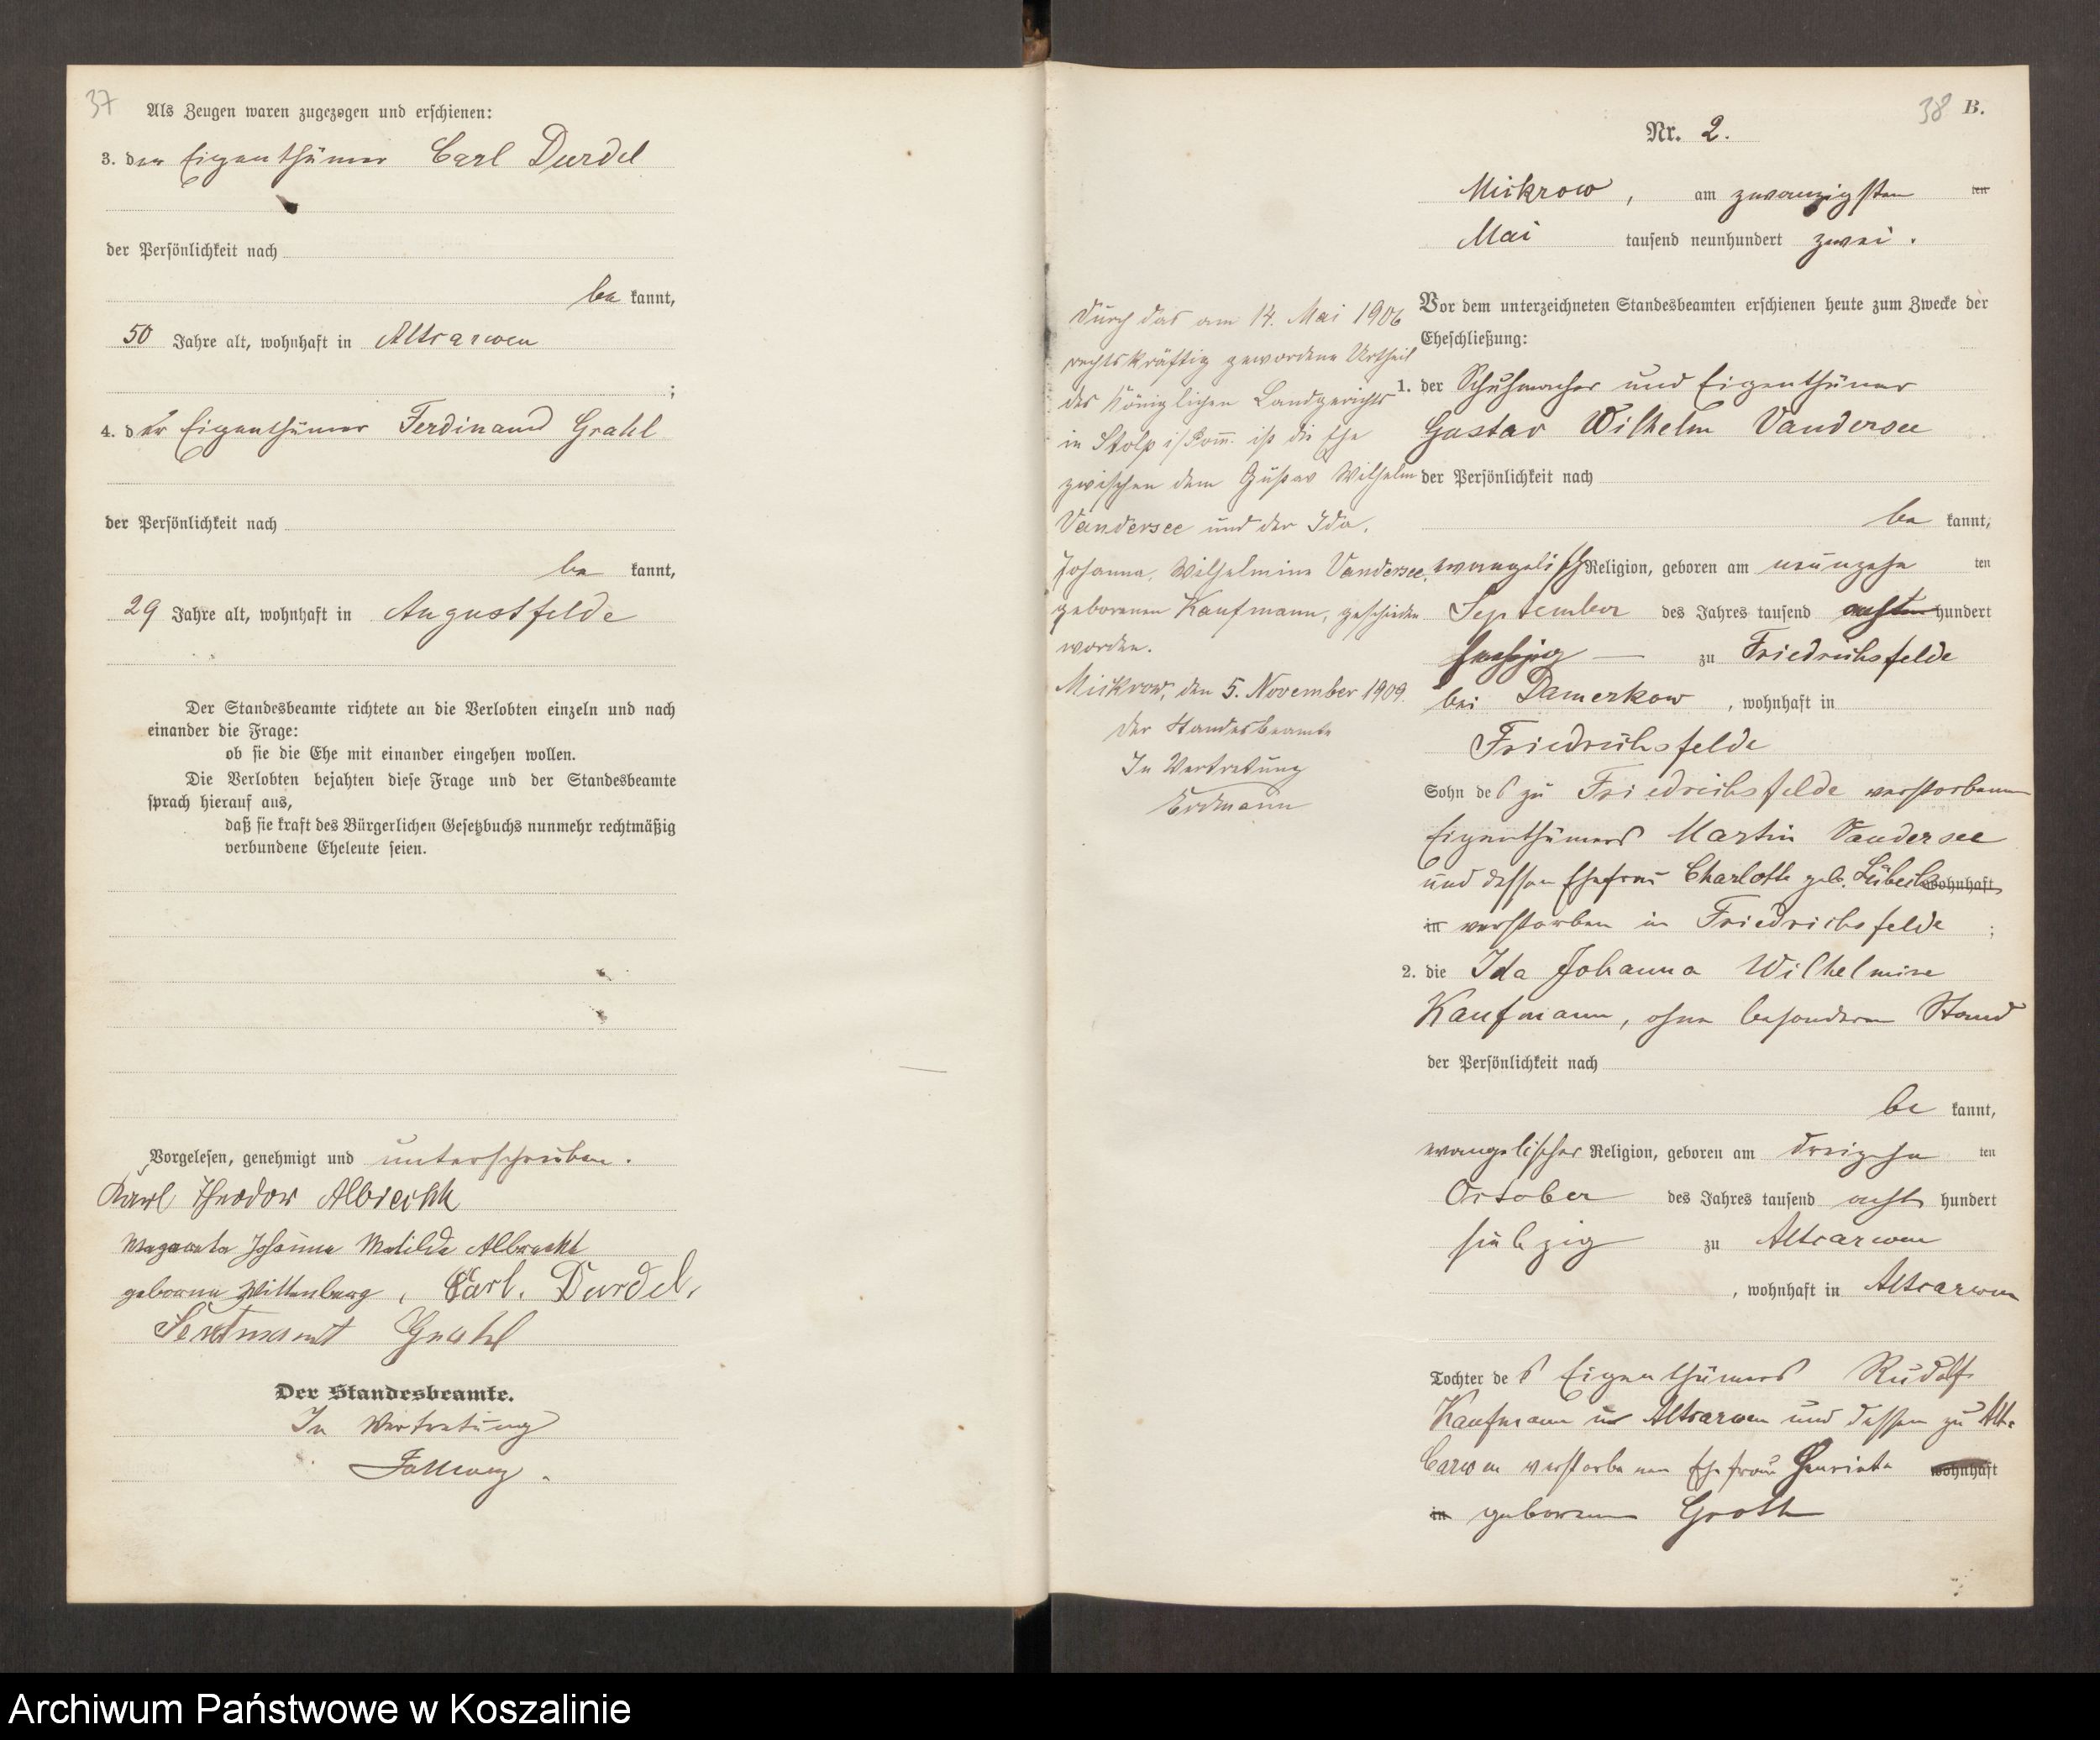 37
Als Zeugen waren zugezogen und erschienen:
3. der Eigenthümer Carl Durdel
der Persönlichkeit nach
be kannt,
50 Jahre alt, wohnhaft in Altcarwen
;
4. der Eigenthümer Ferdinand Grahl
der Persönlichkeit nach
be kannt,
29 Jahre alt, wohnhaft in Augustfelde
Der Standesbeamte richtete an die Verlobten einzeln und nach
einander die Frage:
ob sie die Ehe mit einander eingehen wollen.
Die Verlobten bejahten diese Frage und der Standesbeamte
sprach hierauf aus,
daß sie kraft des Bürgerlichen Gesetzbuchs nunmehr rechtmäßig
verbundene Eheleute seien.
Vorgelesen, genehmigt und unterschrieben.
Karl Theodor Albrecht
Johanna Matilde Albrecht
geborene Wittenberg, Carl. Durdel,
Grahl
Der Standesbeamte.
In Vertretung
38 B.
Nr. 2.
Mickrow, am zwanzigsten ten
Mai tausend neunhundert zwei.
Vor dem unterzeichneten Standesbeamten erschienen heute zum Zwecke der
Eheschließung:
1. der Schuhmacher und Eigenthümer
Gustav Wilhelm Vandersee
der Persönlichkeit nach
be kannt,
evangelisch Religion, geboren am neunzehn ten
September des Jahres tausend acht hundert
sechzig — zu Friedrichsfelde
bei Damerkow, wohnhaft in
Friedrichsfelde
Sohn des zu Friedrichsfelde verstorbenen
Eigenthümers Martin Vandersee
und dessen Ehefrau Charlotte geb. Lübeck wohnhaft
in verstorben in Friedrichsfelde ;
2. die Ida Johanna Wilhelmine
Kaufmann, ohne besonderen Stand
der Persönlichkeit nach
be kannt,
evangelischer Religion, geboren am dreizehn ten
October des Jahres tausend acht hundert
siebzig zu Altcarwen
, wohnhaft in Altcarwen
Tochter des Eigenthümers Rudolf
Kaufmann in Altcarwen und dessen zu Alt-
Carwen verstorbenen Ehefrau Henriette wohnhaft
in geborenen Groth
Durch das am 14. Mai 1906
rechtskräftig gewordene Urtheil
des Königlichen Landgerichts
in Stolp i/Pom. ist die Ehe
zwischen dem Gustav Wilhelm
Vandersee und der Ida,
Johanna, Wilhelmine Vandersee,
geborenen Kaufmann, geschieden
worden.
Mickrow, den 5. November 1909.
Der Standesbeamte
In Vertretung
Erdmann
Archiwum Państwowe w Koszalinie